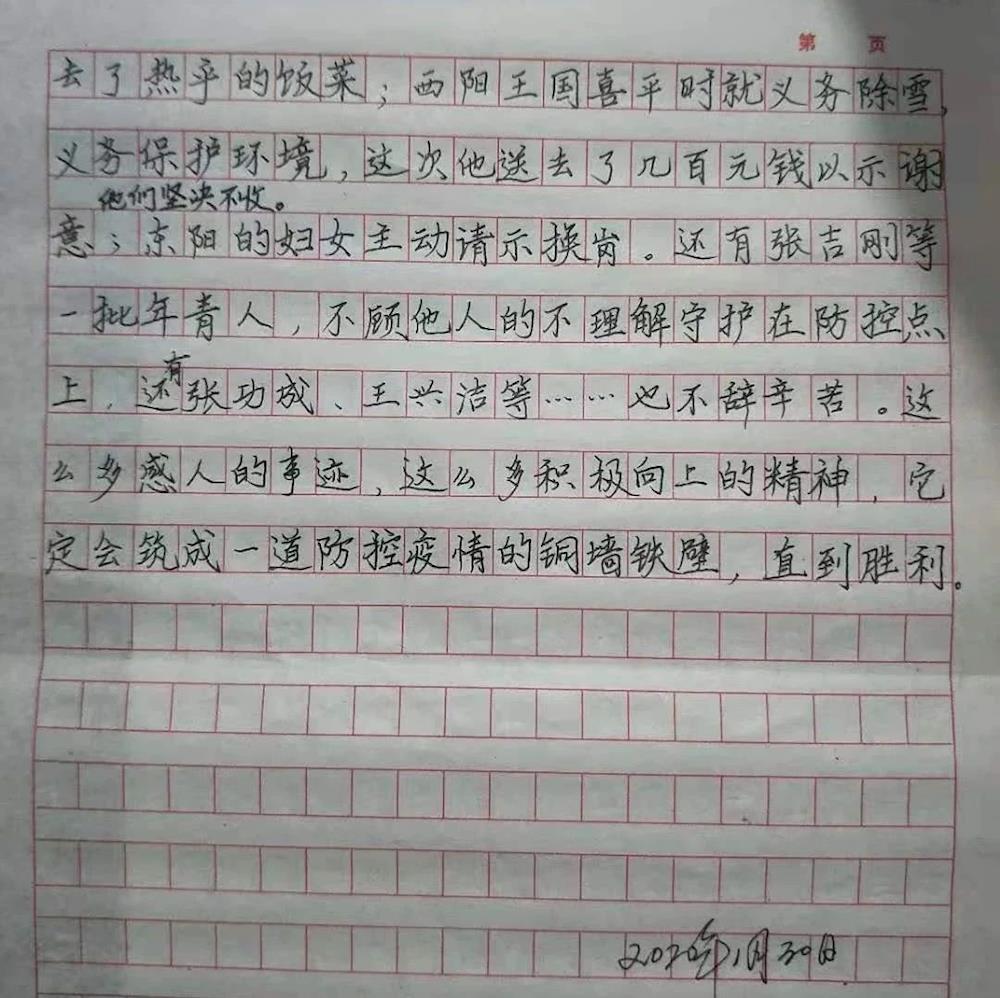 第 页
去了热乎的饭菜；西阳王国喜平时就义务除雪，
义务保护环境，这次他送去了几百元钱以示谢
他们坚决不收。
意；东阳的妇女主动请示换岗。还有张吉刚等
一批年青人，不顾他人的不理解守护在防控点
上，还有张功成、王兴洁等……也不辞辛苦。这
么多感人的事迹，这么多积极向上的精神，它
定会筑成一道防控疫情的铜墙铁壁，直到胜利。
2020年1月30日